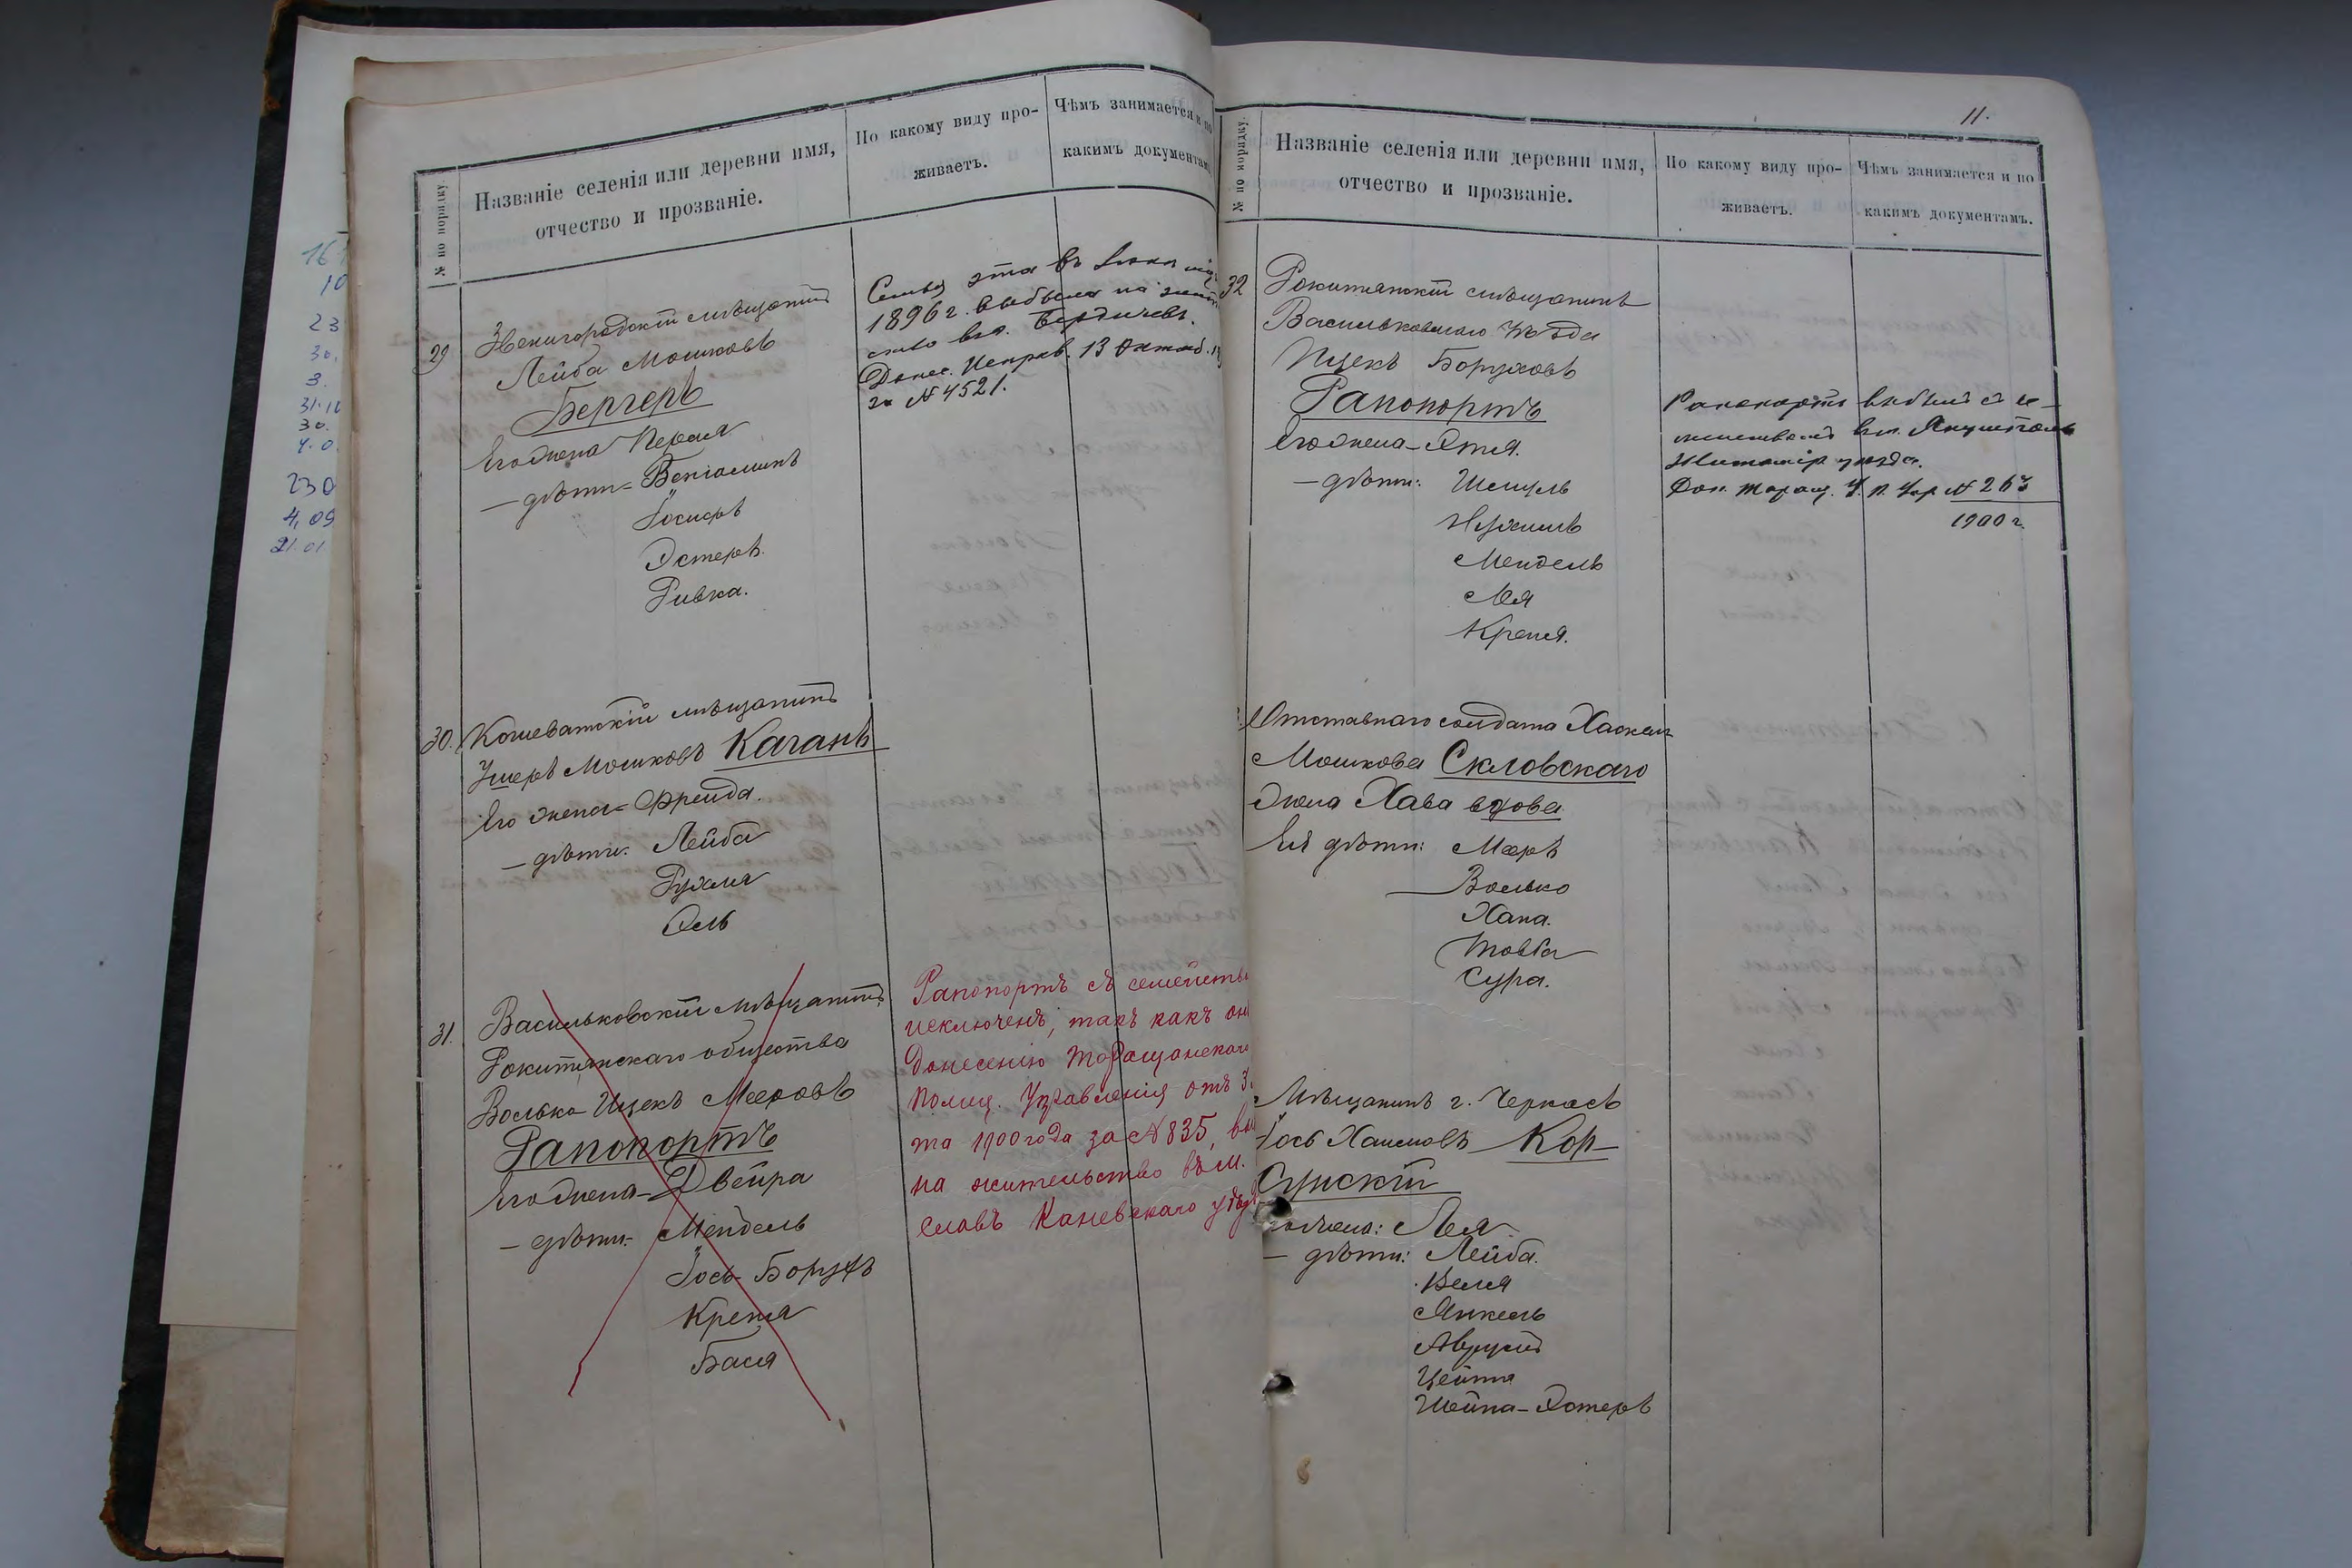 16
10
23
30.
3.
31.10
30.
4.0
230
4,09
21.01
№ по порядку.
Названіе селенія или деревни имя,
отчество и прозваніе.
По какому виду про-
живаетъ.
Чѣмъ занимается и по
какимъ документамъ
29
Звенигородскій мѣщанинъ
Лейба Мошковъ
Бергеръ
Его жена Перля
— дѣти - Веніаминъ
Іосифъ
Эстеръ.
Ривка.
Семья эта въ
1896 г. выбыла на жит
ство въ г. Бердичевъ.
Донес. Исправ. 13 Октяб.
за № 4521.
30.
Кошеватскій мѣщанинъ
Ушеръ Мошковъ Каганъ
Его жена - Фрейда.
— дѣти: Лейба
Рухля
Сль
31.
Васильковскій мѣщанинъ
Рокитянскаго общества
Волько Ицекъ Мееровъ
Рапопортъ
Его жена - Двейра
— дѣти: Мендель
Іось-Борухъ
Креня
Бася
Рапопортъ съ семейств
исключенъ, такъ какъ он
донесенію Таращанскаго
Полиц. Управленія отъ 3
та 1900 года за № 835, вы
на жительство въ м.
славъ Каневскаго уѣзд
11.
№ по порядку.
Названіе селенія или деревни имя,
отчество и прозваніе.
По какому виду про-
живаетъ.
Чѣмъ занимается и по
какимъ документамъ.
32
Рокитянскій мѣщанинъ
Васильковскаго Уѣзда
Ицекъ Боруховъ
Рапопортъ
Его жена - Этя.
— дѣти: Шмуль
Нухимъ
Мендель
Лея
Креня.
Рапопортъ выбылъ съ
жительства въ м.
Житомір уѣзда.
Дон. Таращ. У. П. Упр № 267
1900 г.
Отставнаго солдата Хаскеля
Мошкова Скловскаго
жена Хава вдова
Ея дѣти: Мееръ
Волько
Хана.
Товба
Сура.
Мѣщанинъ г. Черкасъ
Іось Хаимовъ Кор-
сунскій
жена: Лея
— дѣти: Лейба.
Веля
Янкель
Аврумъ
Цейтя
Шейна-Эстеръ